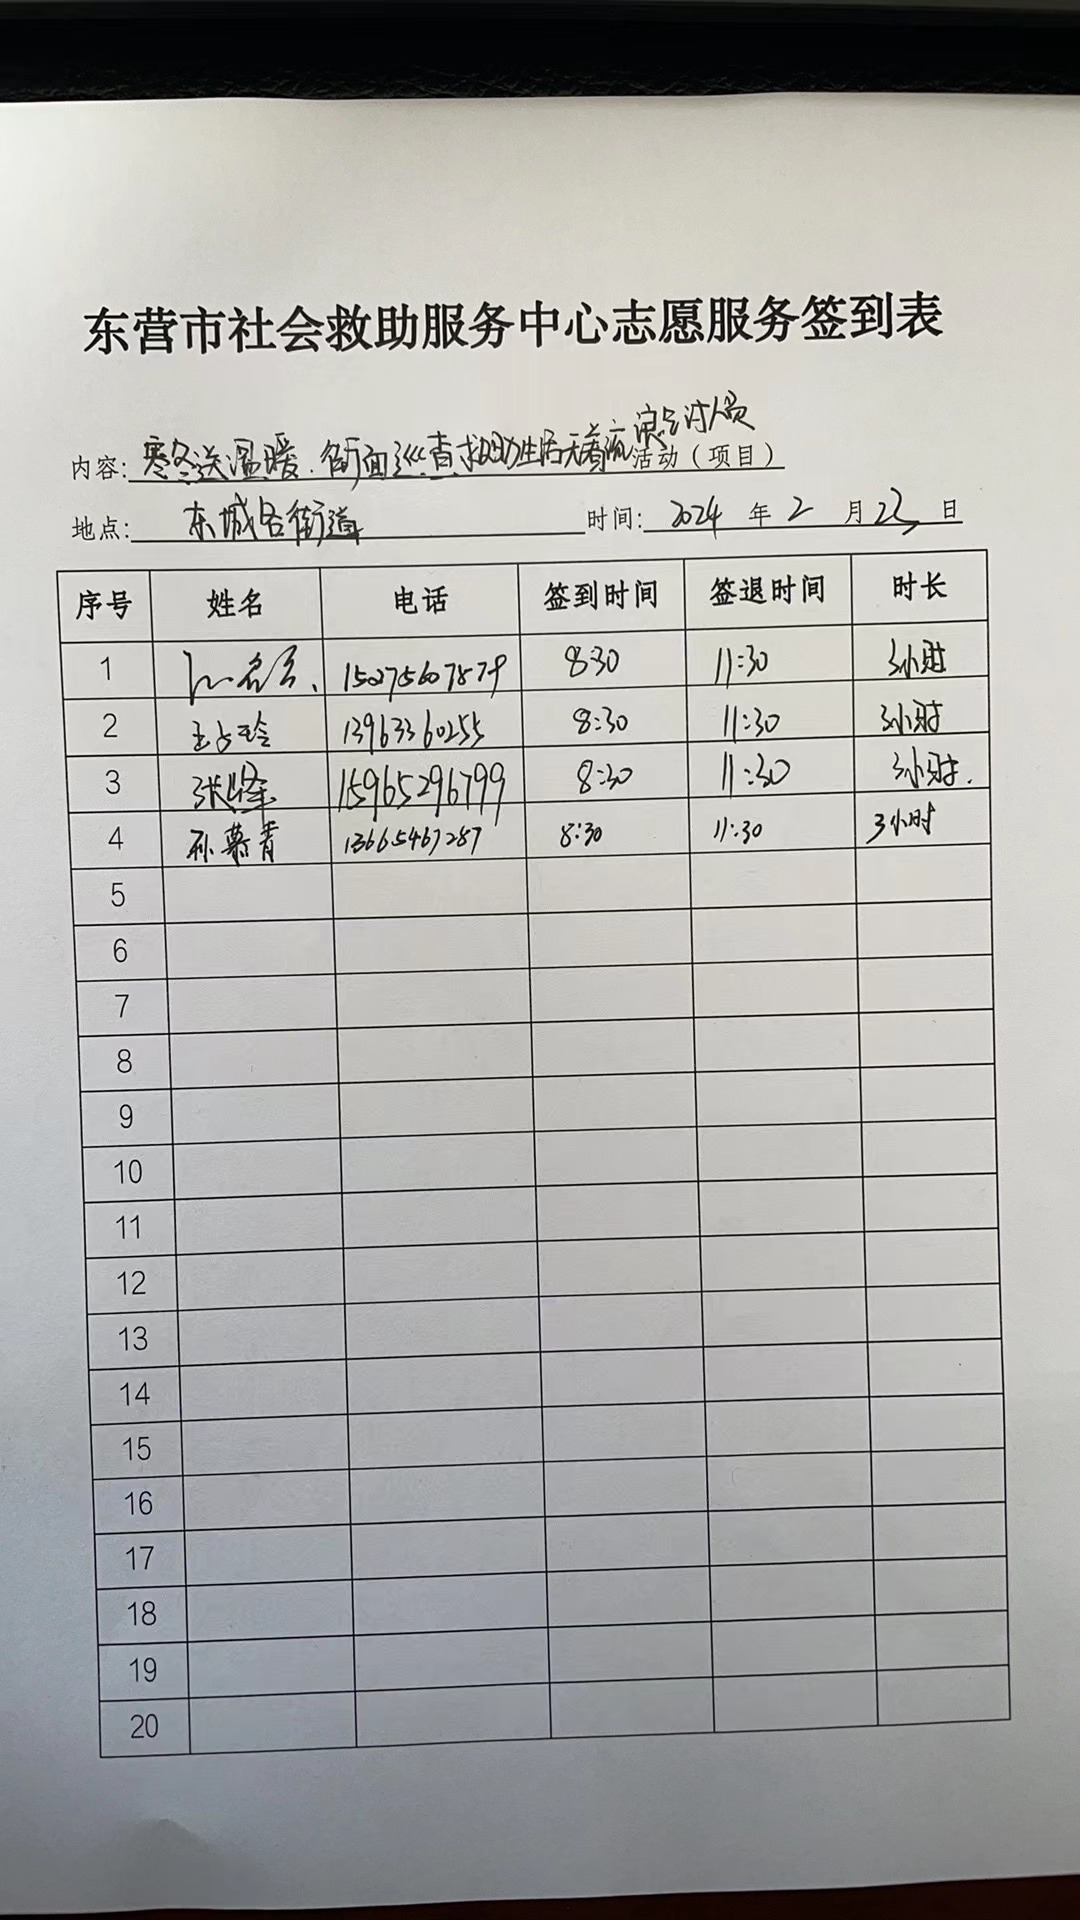 东营市社会救助服务中心志愿服务签到表
内容: 寒冬送温暖.街面巡查救助生活无着流浪乞讨人员活动（项目）
地点: 东城各街道 时间: 2024 年 2 月 23 日
序号 姓名 电话 签到时间 签退时间 时长
1 15275607879 8:30 11:30 3小时
2 王占玲 13963360255 8:30 11:30 3小时
3 张峰 15965296799 8:30 11:30 3小时.
4 孙慕青 13665467287 8:30 11:30 3小时
5
6
7
8
9
10
11
12
13
14
15
16
17
18
19
20